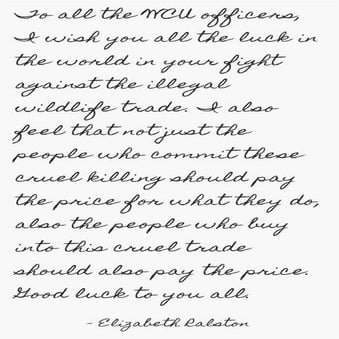 To all the WCU officers,
I wish you all the luck in
the world in your fight
against the illegal
wildlife trade. I also
feel that not just the
people who commit these
cruel killing should pay
the price for what they do,
also the people who buy
into this cruel trade
should also pay the price.
Good luck to you all.
- Elizabeth Ralston